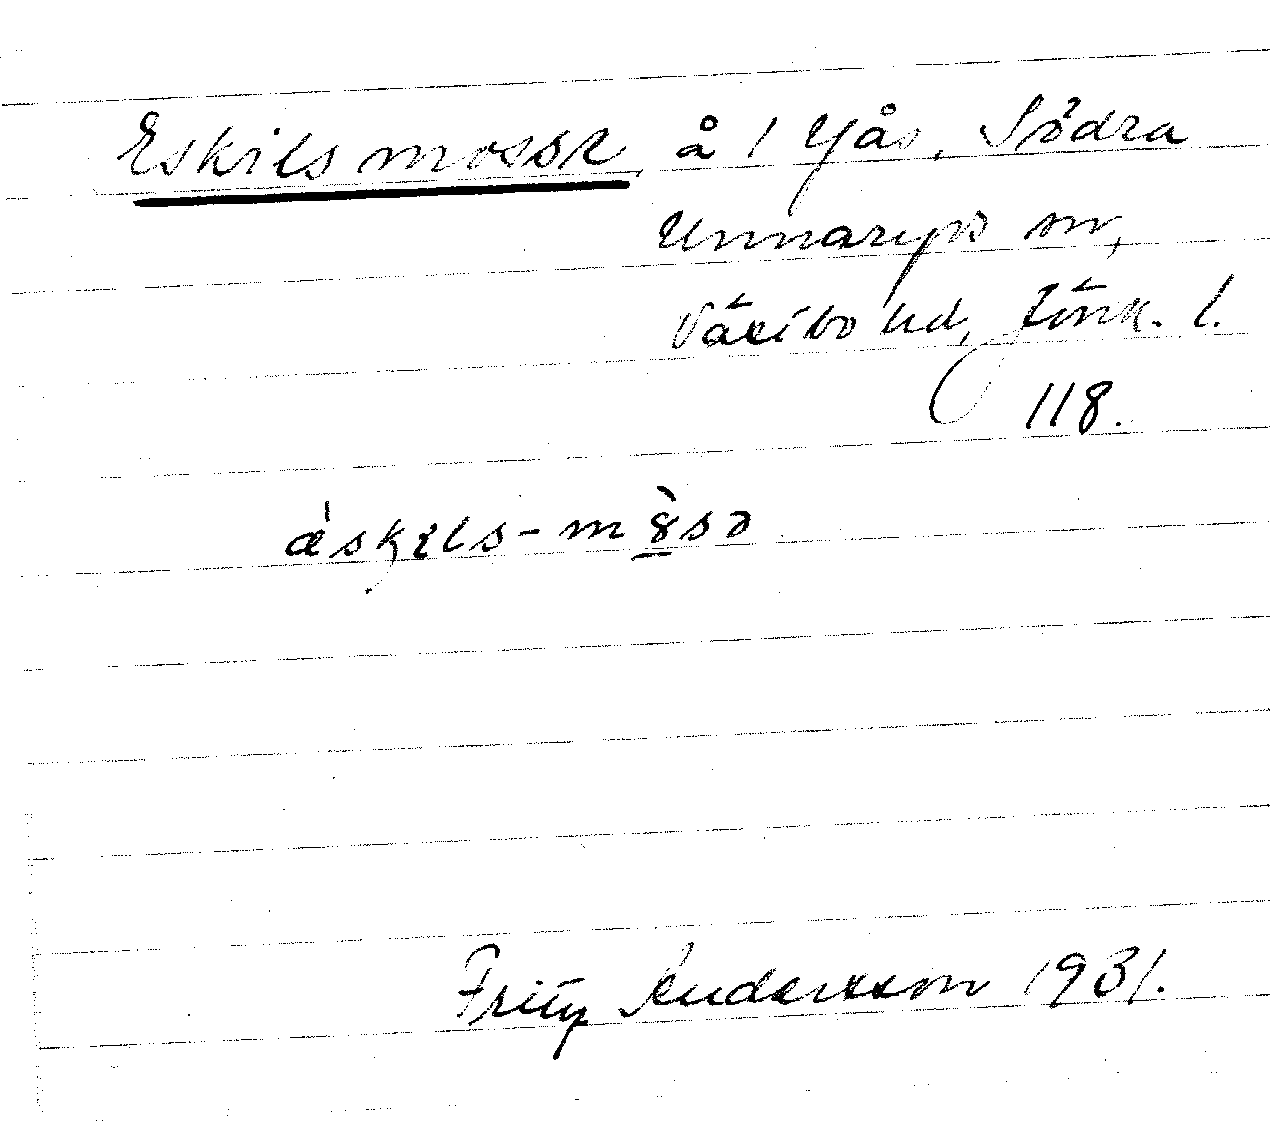 Eskils mosse å 1 Yås, Södra
Unnaryds sn,
Västbo hd, Jönk. l.
118.
æ̀skɩls-m8̀sə
Fritz Andersson 1931.